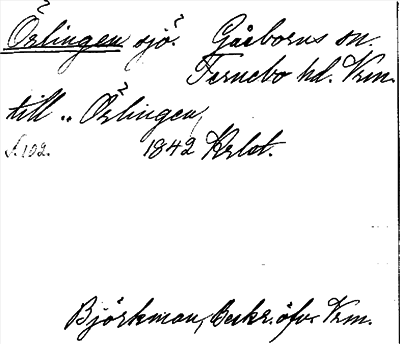 Örlingen sjö. Gåsborns sn.
Fernebo hd. Vrm.
till „ Örlingen,
s. 102. 1842 Krlst.
Björkman, Beskr. öfv. Vrm.